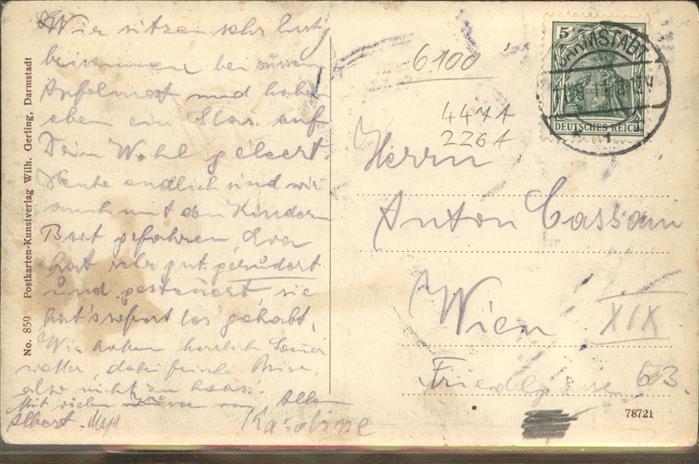 Wir sitzen sehr lustig
beisammen bei süssem
Apfelmost und haben
eben ein Glas auf
Dein Wohl geleert.
Heute endlich sind wir
auch mit den Kindern
Boot gefahren, Eva
hat sehr gut gerudert
und gesteuert, sie
hat's sofort los gehabt.
Wir haben herrlich Sonnen
wetter, dabei frische Brise,
also nicht zu heiss.
Mit vielen von Allen
Albert Karoline
No. 859 Postkarten-Kunstverlag Wilh. Gerling, Darmstadt
6100
4471
2261
5
DARMSTADT
DEUTSCHES REICH
1
Herrn
Anton Cassani
Wien XIX
Friedlgasse 63.
78721